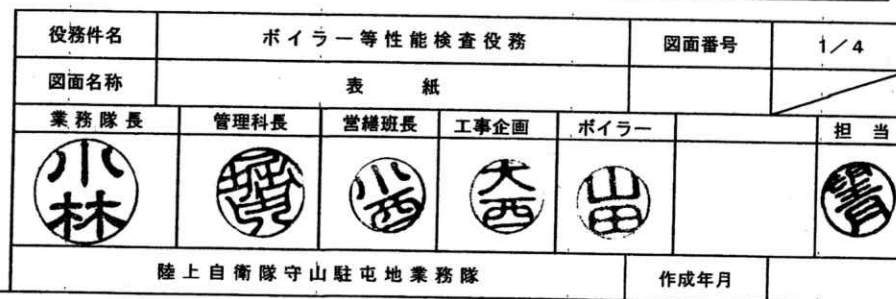 役務件名 ボイラー等性能検査役務 図面番号 1/4
図面名称 表紙
業務隊長 管理科長 営繕班長 工事企画 ボイラー 担当
小林 小西 大西 山田
陸上自衛隊守山駐屯地業務隊 作成年月